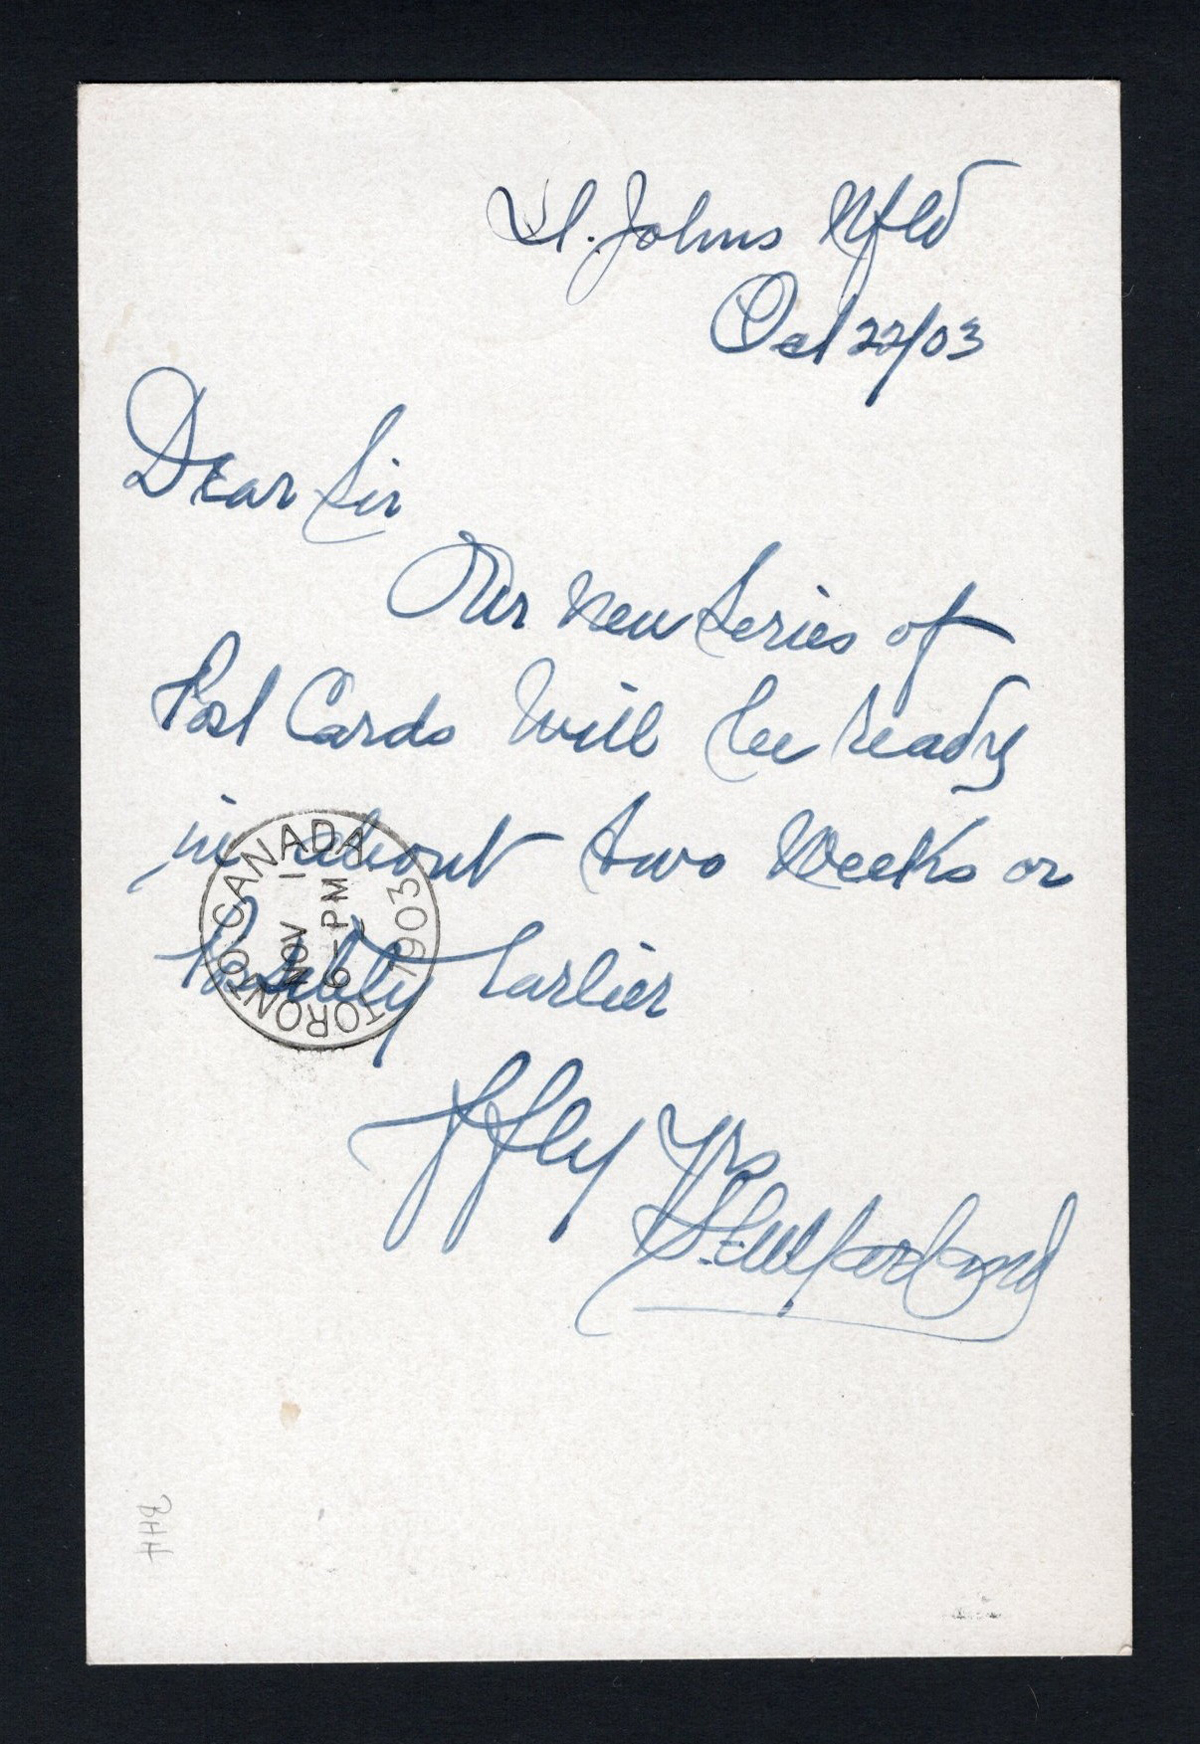 St. Johns Nfld
Oct 22/03
Dear Sir
Our New Series of
Post Cards Will be ready
in about two Weeks or
Possibly Earlier
Yrs
TORONTO. CANADA.
NOV 1
6-PM
1903
BHH